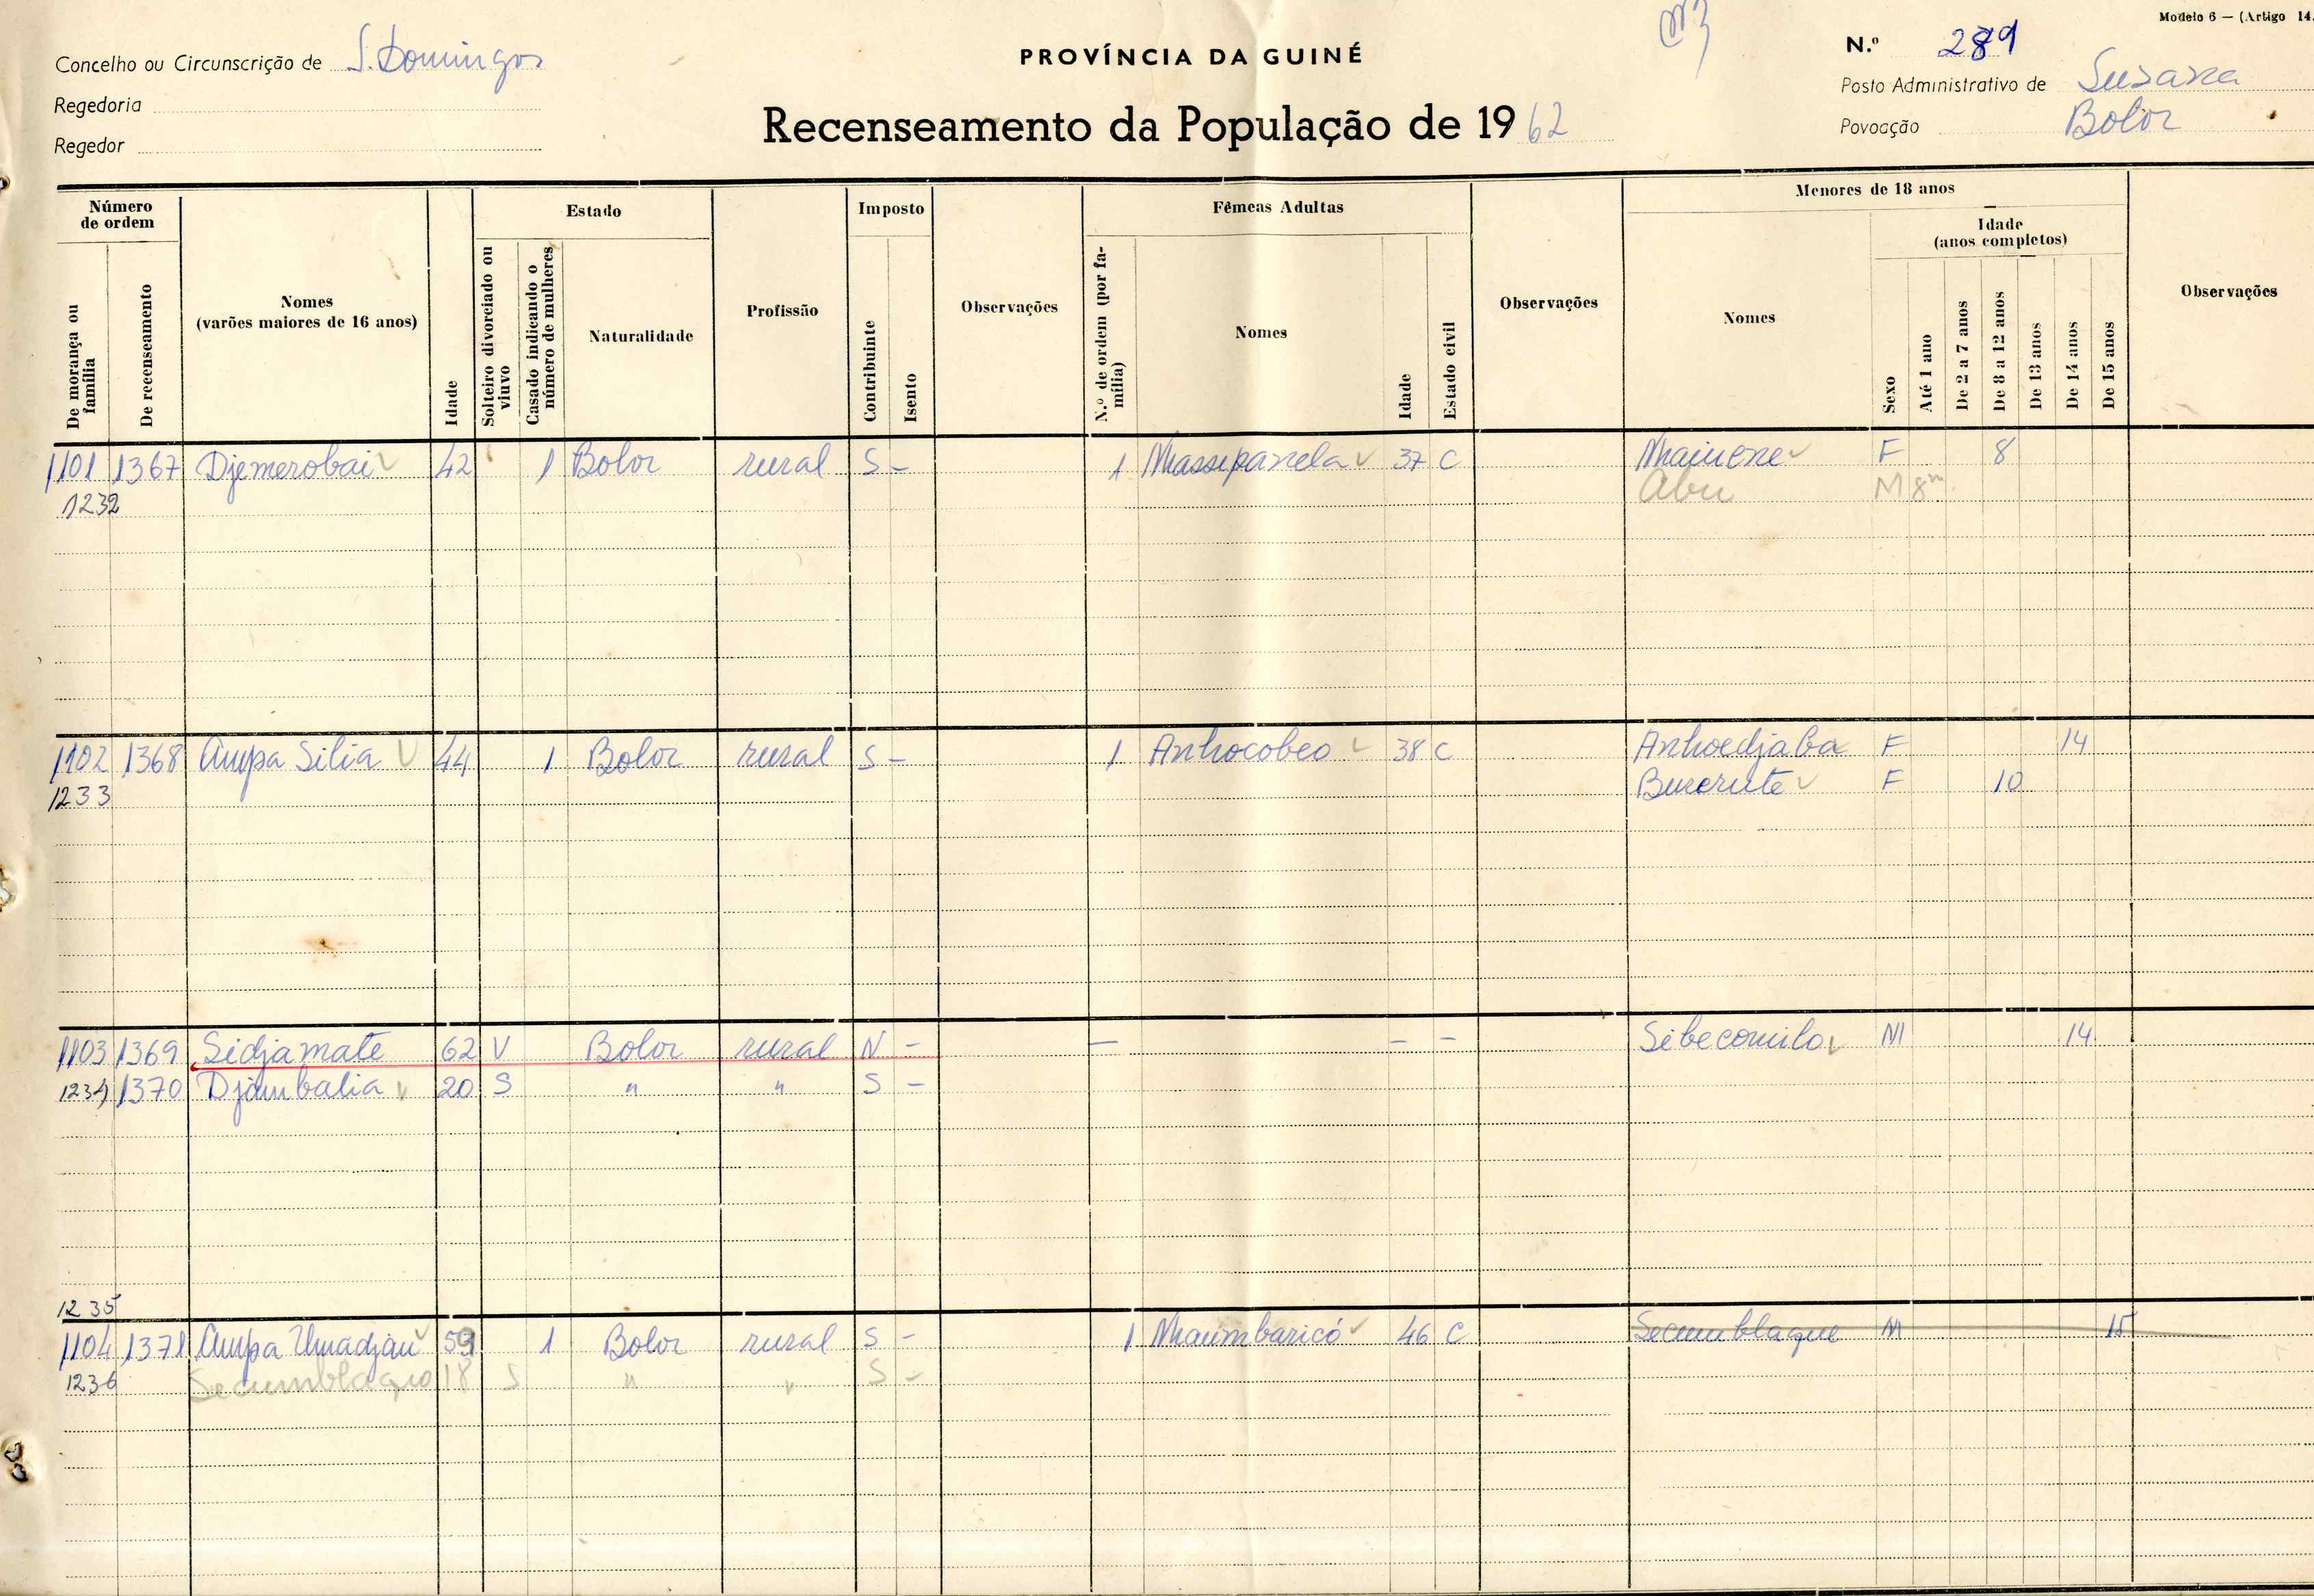 Modelo 6 — (Artigo 14.
Concelho ou Circunscrição de S. Domingos
PROVÍNCIA DA GUINÉ
N.º 289
Regedoria
Posto Administrativo de Susana
Regedor
Recenseamento da População de 1962
Povoação Bolor
Número de ordem
De morança ou família
De recenseamento
Nomes
(varões maiores de 16 anos)
Idade
Estado
Solteiro divorciado ou viuvo
Casado indicando o número de mulheres
Naturalidade
Profissão
Imposto
Contribuinte
Isento
Observações
Fêmeas Adultas
N.º de ordem (por família)
Nomes
Idade
Estado civil
Observações
Menores de 18 anos
Nomes
Sexo
Idade
(anos completos)
Até 1 ano
De 2 a 7 anos
De 8 a 12 anos
De 13 anos
De 14 anos
De 15 anos
Observações
1101 1367 Djemerobai 42 1 Bolor rural S - 1 Nhassipanela 37 C Nhaiuene F 8
1232 Abu M 8m
1102 1368 Ampa Silia 44 1 Bolor rural S - 1 Anhocobeo 38 C Anhoedjaba F 14
1233 Bucrute F 10
1103 1369 Sidjamate 62 V Bolor rural N - — - - Sibecomilo M 14
1234 1370 Djambalia 20 S " " S -
1235
1104 1371 Ampa Umadjau 59 1 Bolor rural S - 1 Nhaimbaricó 46 C Secumblaque M 15
1236 Secumblaquo 18 S " " S -